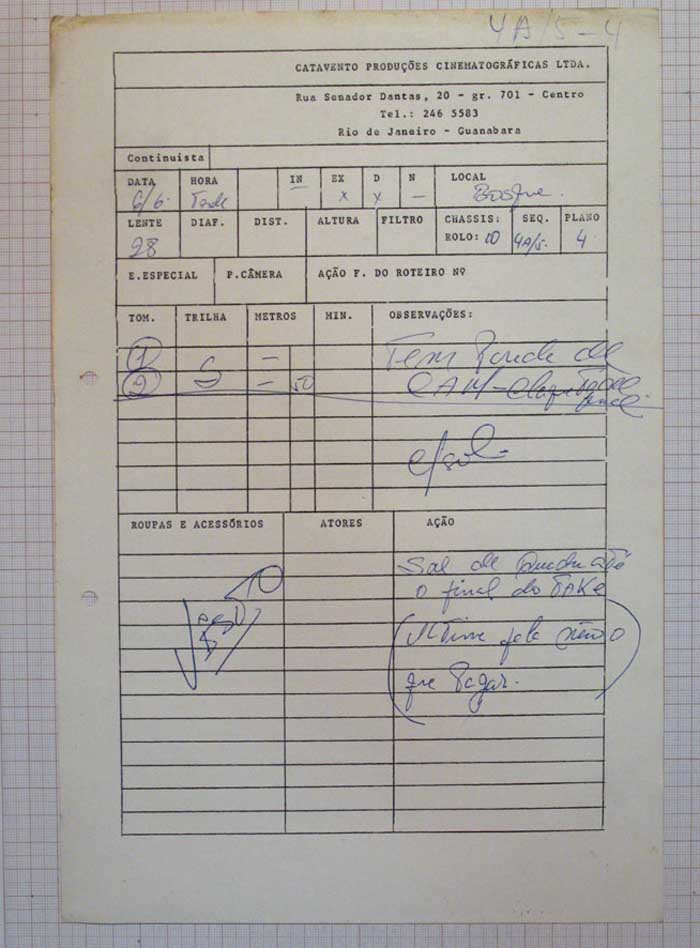 4A/5-4
CATAVENTO PRODUÇÕES CINEMATOGRÁFICAS LTDA.
Rua Senador Dantas, 20 - gr. 701 - Centro
Tel.: 246 5583
Rio de Janeiro - Guanabara
Continuista
DATA HORA IN EX D N LOCAL
6/6. Tarde — x x — Bosque.
LENTE DIAF. DIST. ALTURA FILTRO CHASSIS: SEQ. PLANO
28 ROLO: 10 4A/5. 4
E.ESPECIAL P.CÂMERA AÇÃO F. DO ROTEIRO Nº
TOM. TRILHA METROS MIN. OBSERVAÇÕES:
1 S — Tem de
2 S — 50 CAM-
c/sol-
ROUPAS E ACESSÓRIOS ATORES AÇÃO
Sai de até
o final do TAKE
(Ultima fala
que Pagar.